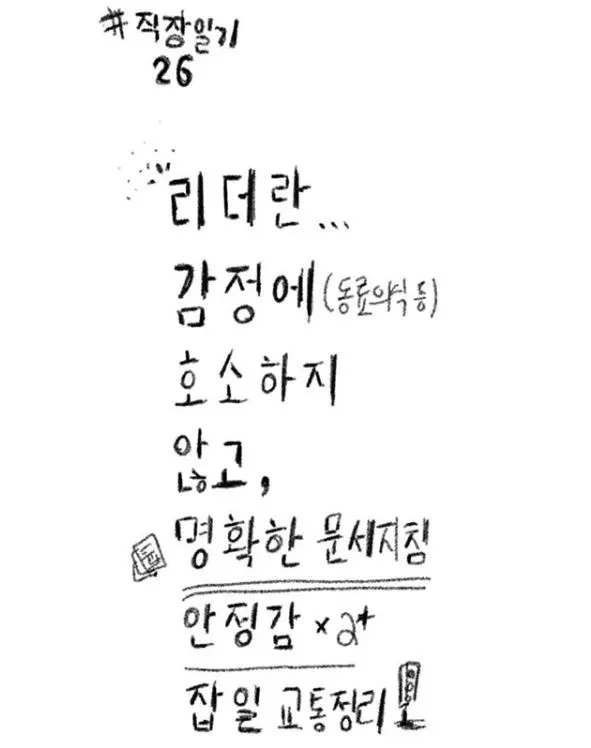 #직장일기
26
리더란...
감정에(동료의식 등)
호소하지
않고,
명확한 문세지침
안정감 × 2+
잡일 교통정리